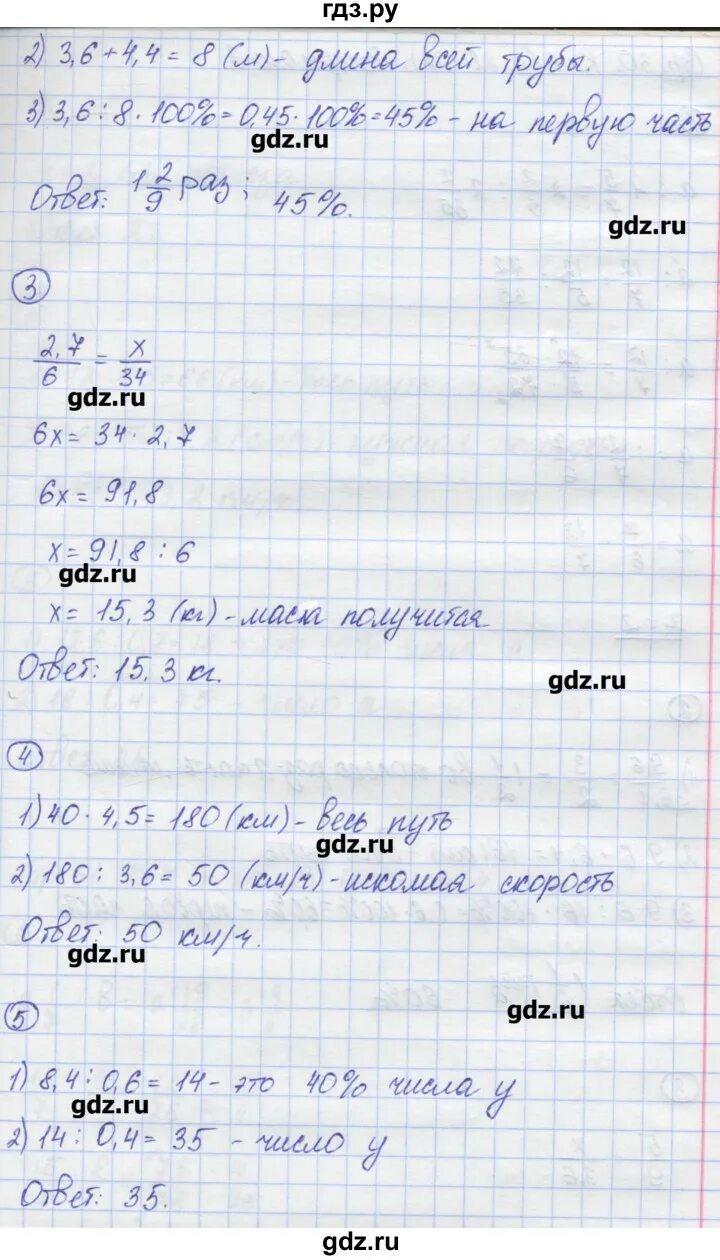 гдз.ру
2) 3,6 + 4,4 = 8 (м) - длина всей трубы.
3) 3,6 : 8 · 100% = 0,45 · 100% = 45% - на первую часть
gdz.ru
Ответ: 1 2/9 раз; 45%.
gdz.ru
3
2,7/6 = x/34
gdz.ru
6x = 34 · 2,7
6x = 91,8
x = 91,8 : 6
gdz.ru
x = 15,3 (кг) - масла получится
Ответ: 15,3 кг.
gdz.ru
4
1) 40 · 4,5 = 180 (км) - весь путь
gdz.ru
2) 180 : 3,6 = 50 (км/ч) - искомая скорость
Ответ: 50 км/ч.
gdz.ru
gdz.ru
5
1) 8,4 : 0,6 = 14 - это 40% числа y
gdz.ru
2) 14 : 0,4 = 35 - число y
Ответ: 35.
gdz.ru